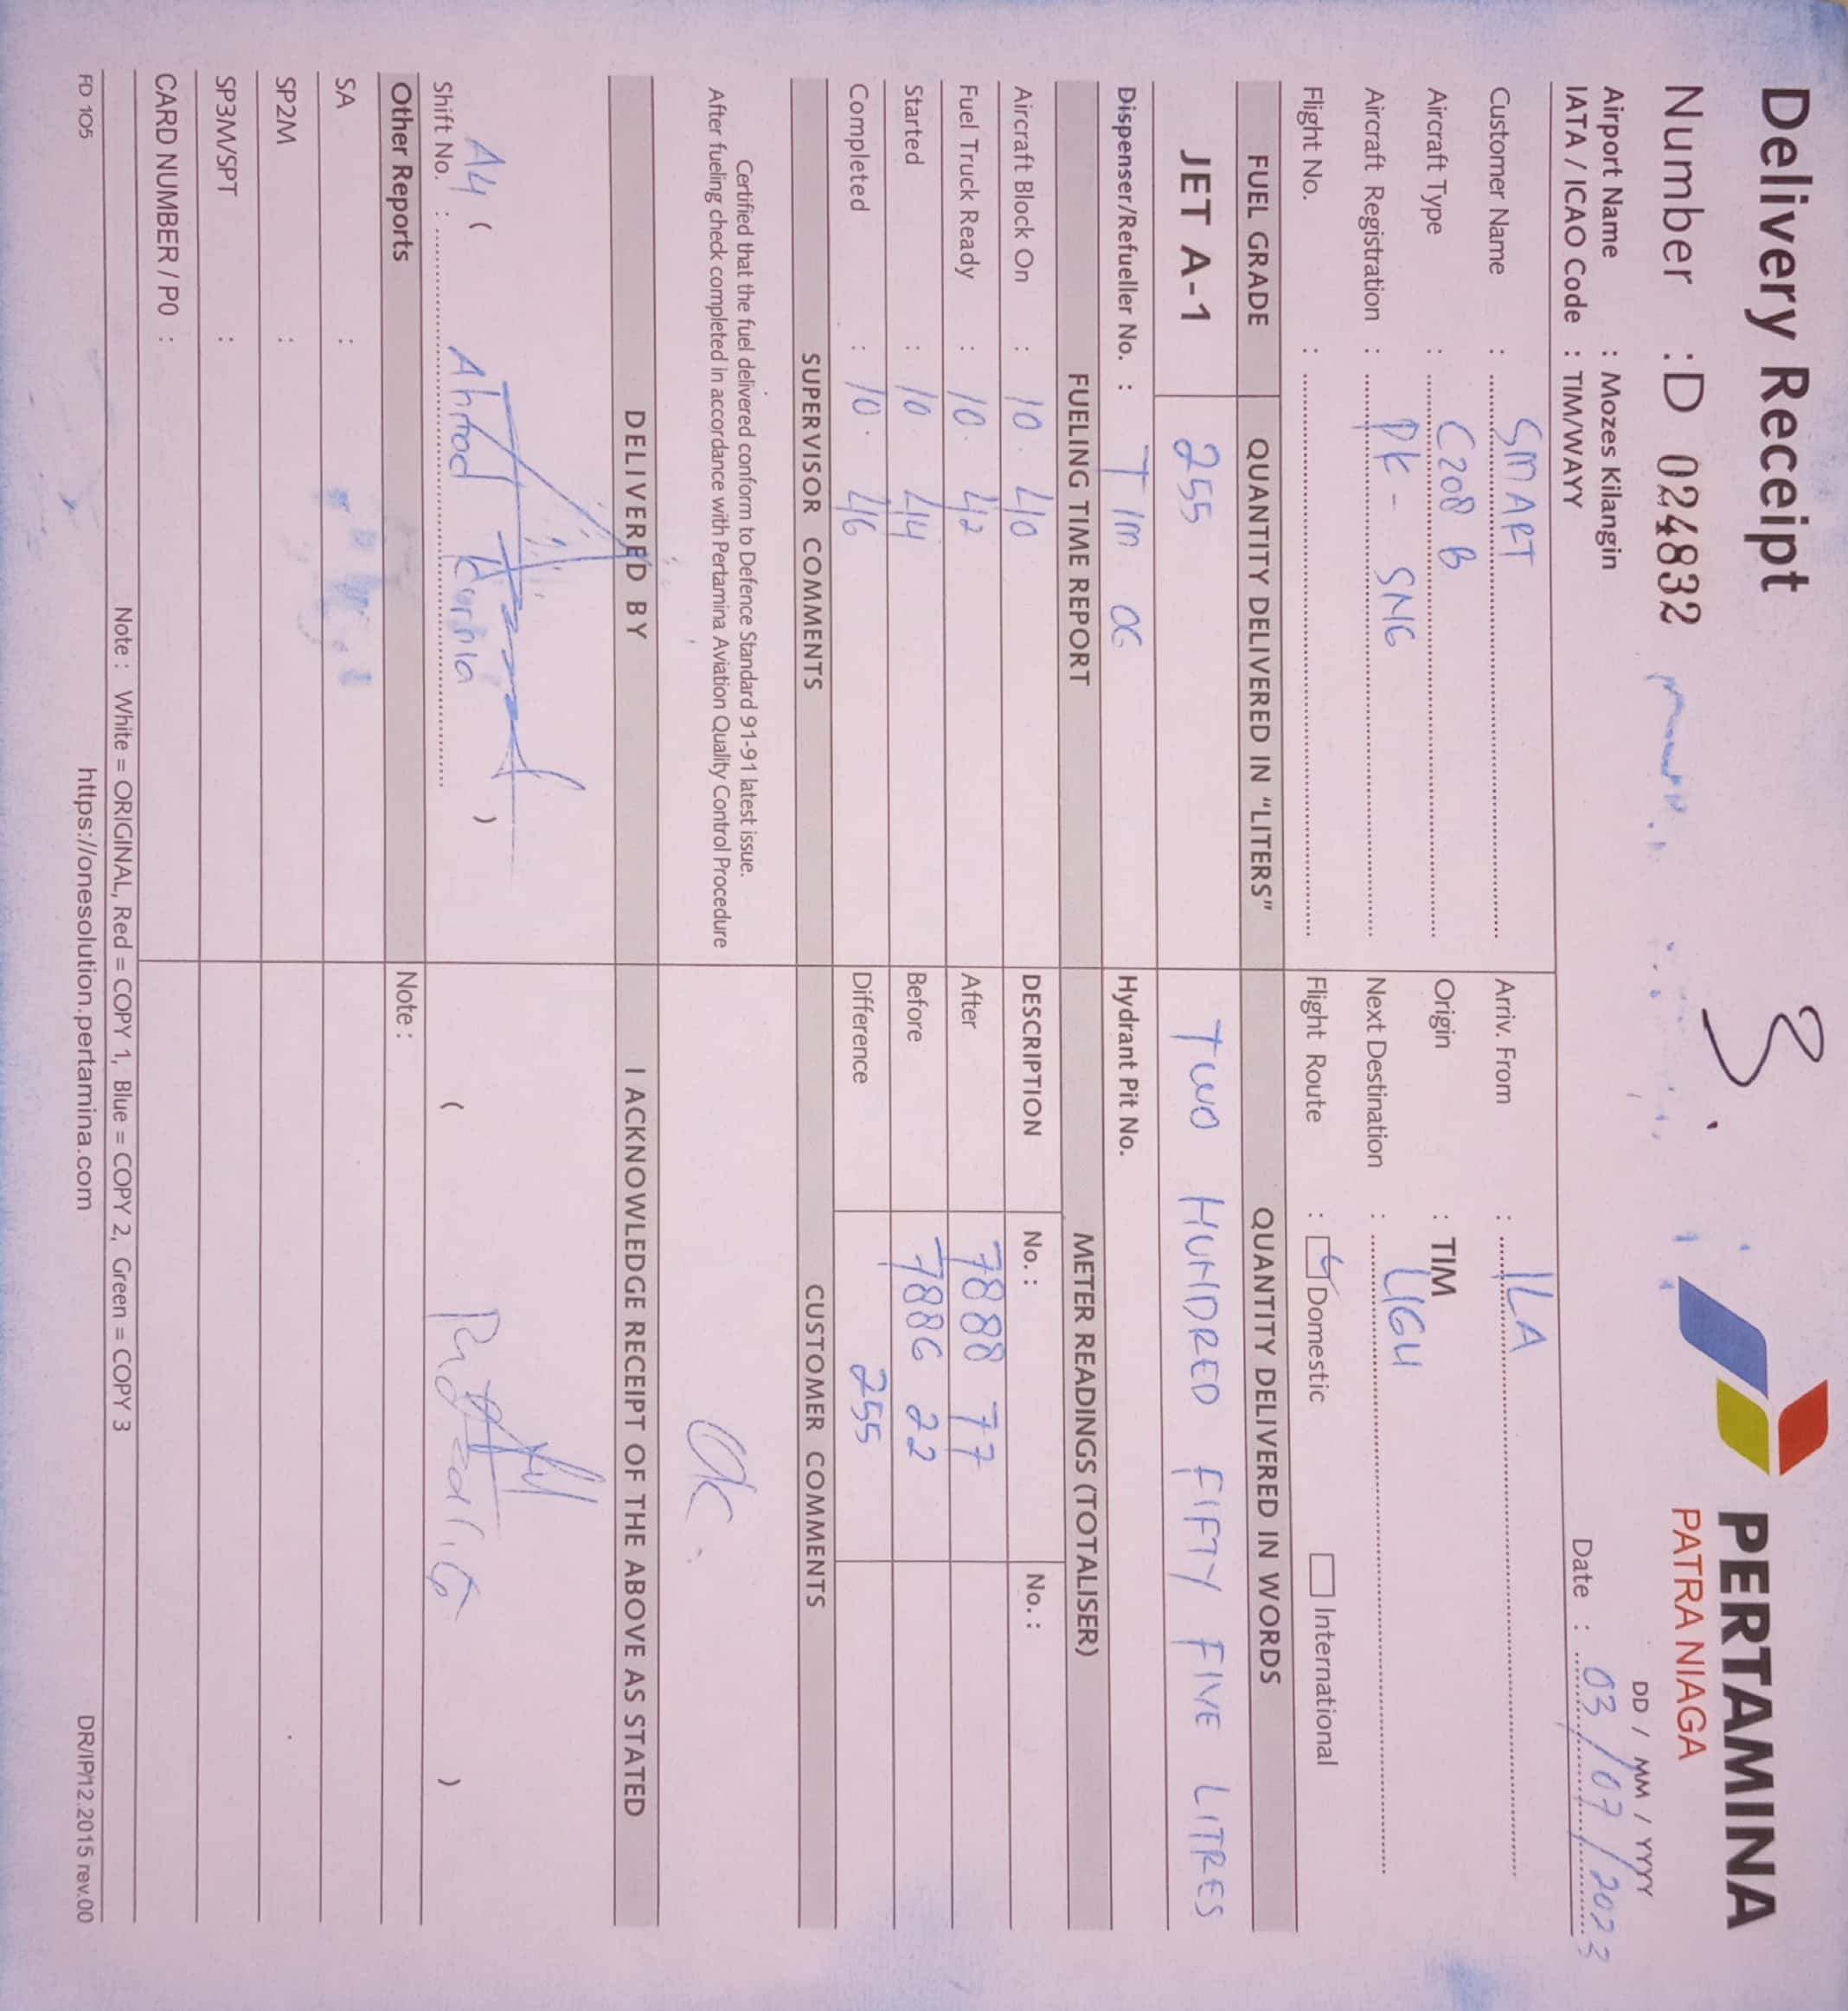 Delivery Receipt
PERTAMINA
PATRA NIAGA
Number : D 024832
3.
DD / MM / YYYY
Airport Name : Mozes Kilangin
IATA / ICAO Code : TIM/WAYY
Date : 03/07/2023
Customer Name : SMART
Arriv. From : ILA
Aircraft Type : C208 B
Origin : TIM
Aircraft Registration : PK - SNG
Next Destination :
Flight No. :
Flight Route : Domestic International
FUEL GRADE QUANTITY DELIVERED IN "LITERS" QUANTITY DELIVERED IN WORDS
JET A-1 255 TWO HUNDRED FIFTY FIVE LITRES
Dispenser/Refueller No. : TIM 06 Hydrant Pit No.
FUELING TIME REPORT METER READINGS (TOTALISER)
Aircraft Block On : 10. 40 DESCRIPTION No. : No. :
Fuel Truck Ready : 10. 42 After 7888 77
Started : 10 44 Before 7886 22
Completed : 10. 46 Difference 255
SUPERVISOR COMMENTS CUSTOMER COMMENTS
Certified that the fuel delivered conform to Defence Standard 91-91 latest issue.
After fueling check completed in accordance with Pertamina Aviation Quality Control Procedure
OK.
DELIVERED BY I ACKNOWLEDGE RECEIPT OF THE ABOVE AS STATED
A4 ( ) ( )
Shift No. :
Other Reports Note :
SA :
SP2M :
SP3M/SPT :
CARD NUMBER / PO :
Note : White = ORIGINAL, Red = COPY 1, Blue = COPY 2, Green = COPY 3
FD 105 https://onesolution.pertamina.com DR/IP/12.2015 rev.00